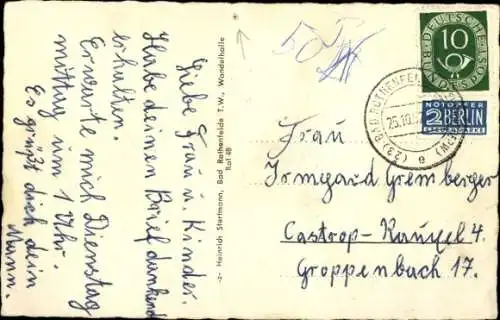 Liebe Frau u. Kinder.
Habe deinen Brief dankend
erhalten.
Erwarte mich Dienstag
mittag um 1 Uhr.
Es grüßt dich dein
Mann.
-z- Heinrich Startmann, Bad Rothenfelde T.W., Wandelhalle
Rot 48
50
DEUTSCHE BUNDESPOST
10
NOTOPFER
2 BERLIN
STEUERMARKE
(23) BAD ROTHENFELDE
25.10.
e
Frau
Irmgard Gremberger
Castrop-Rauxel 4.
Groppenbach 17.